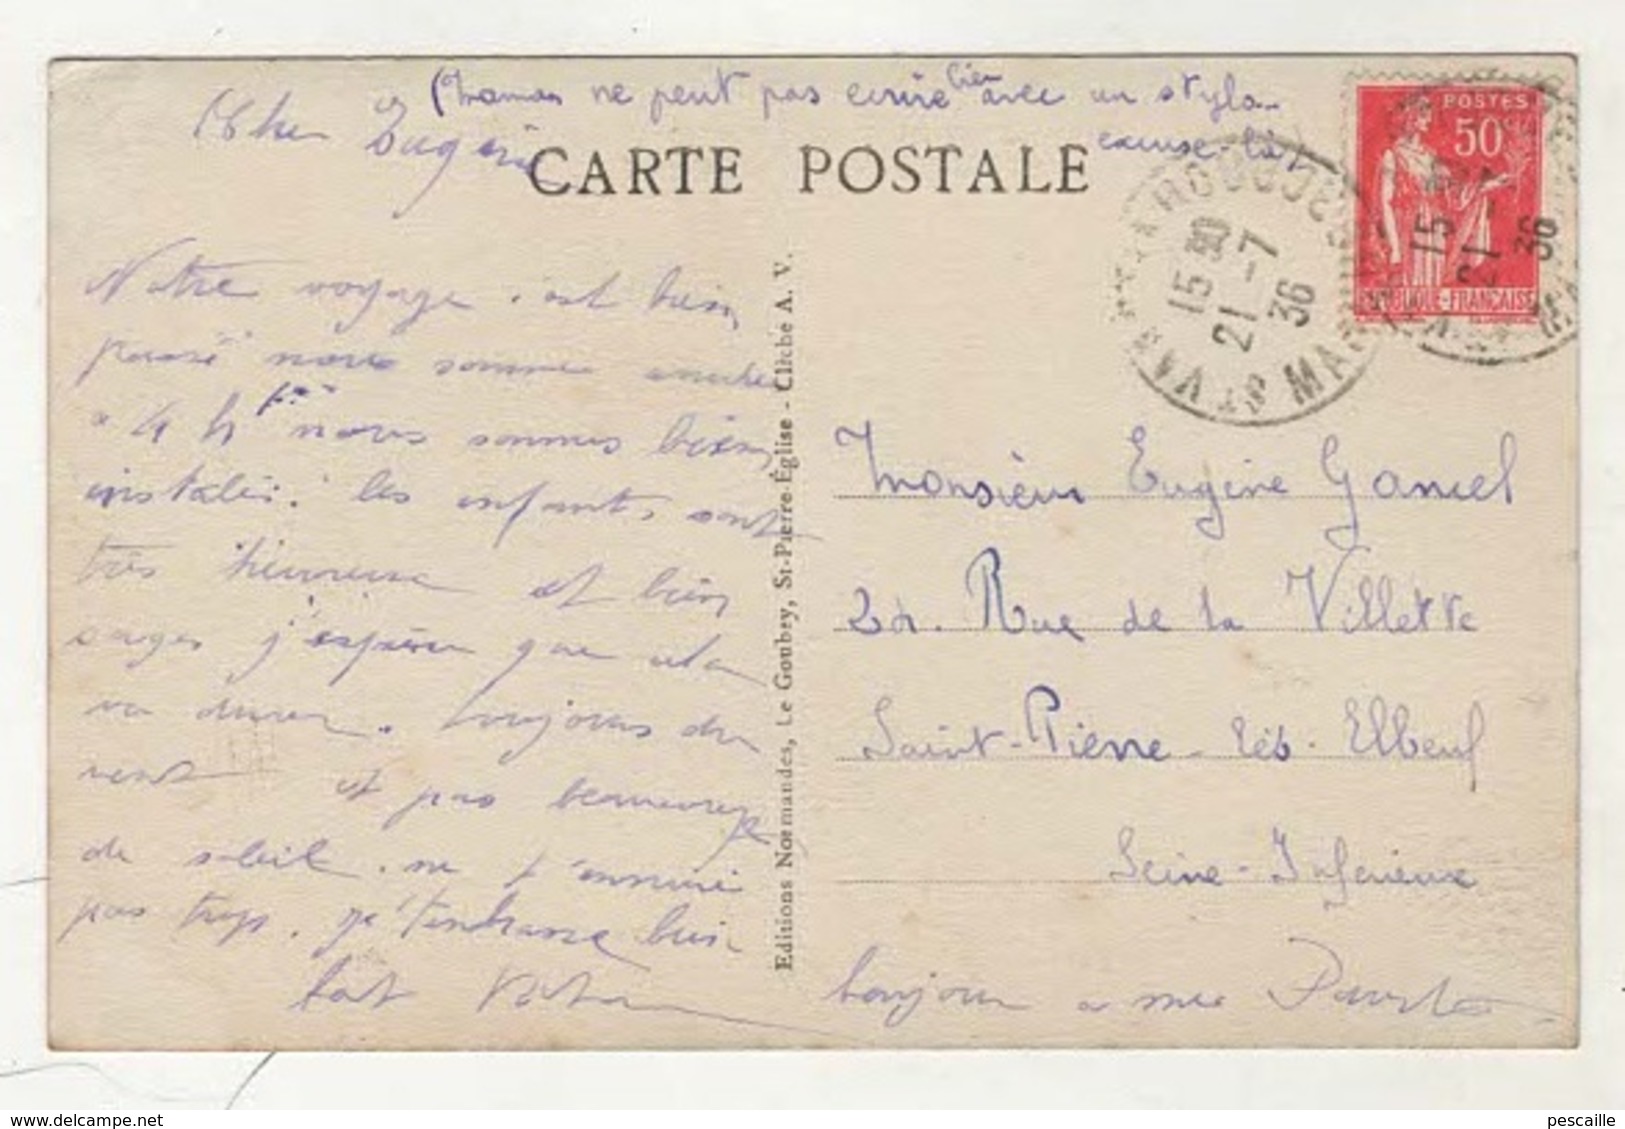 (Maman ne peut pas écrire bien avec un stylo..
excuse-la)
Cher Eugène
CARTE POSTALE
Notre voyage est bien
passé nous sommes
a 4 h nous sommes bien
installés. les enfants sont
très heureux et bien
sages j'espère que cela
va durer. toujours du
vent et pas beaucoup
de soleil. ne t'ennuie
pas trop. je t'embrasse bien
fort
Editions Normandes, Le Goubey, St-Pierre-Église - Cliché A. V.
POSTES
50
REPUBLIQUE-FRANÇAISE
15 30
21-7
36
15
21-7
36
Monsieur Eugène Gancel
Rue de la Villette
Saint-Pierre-lès-Elbeuf
Seine-Inférieure
bonjour a
pescaille